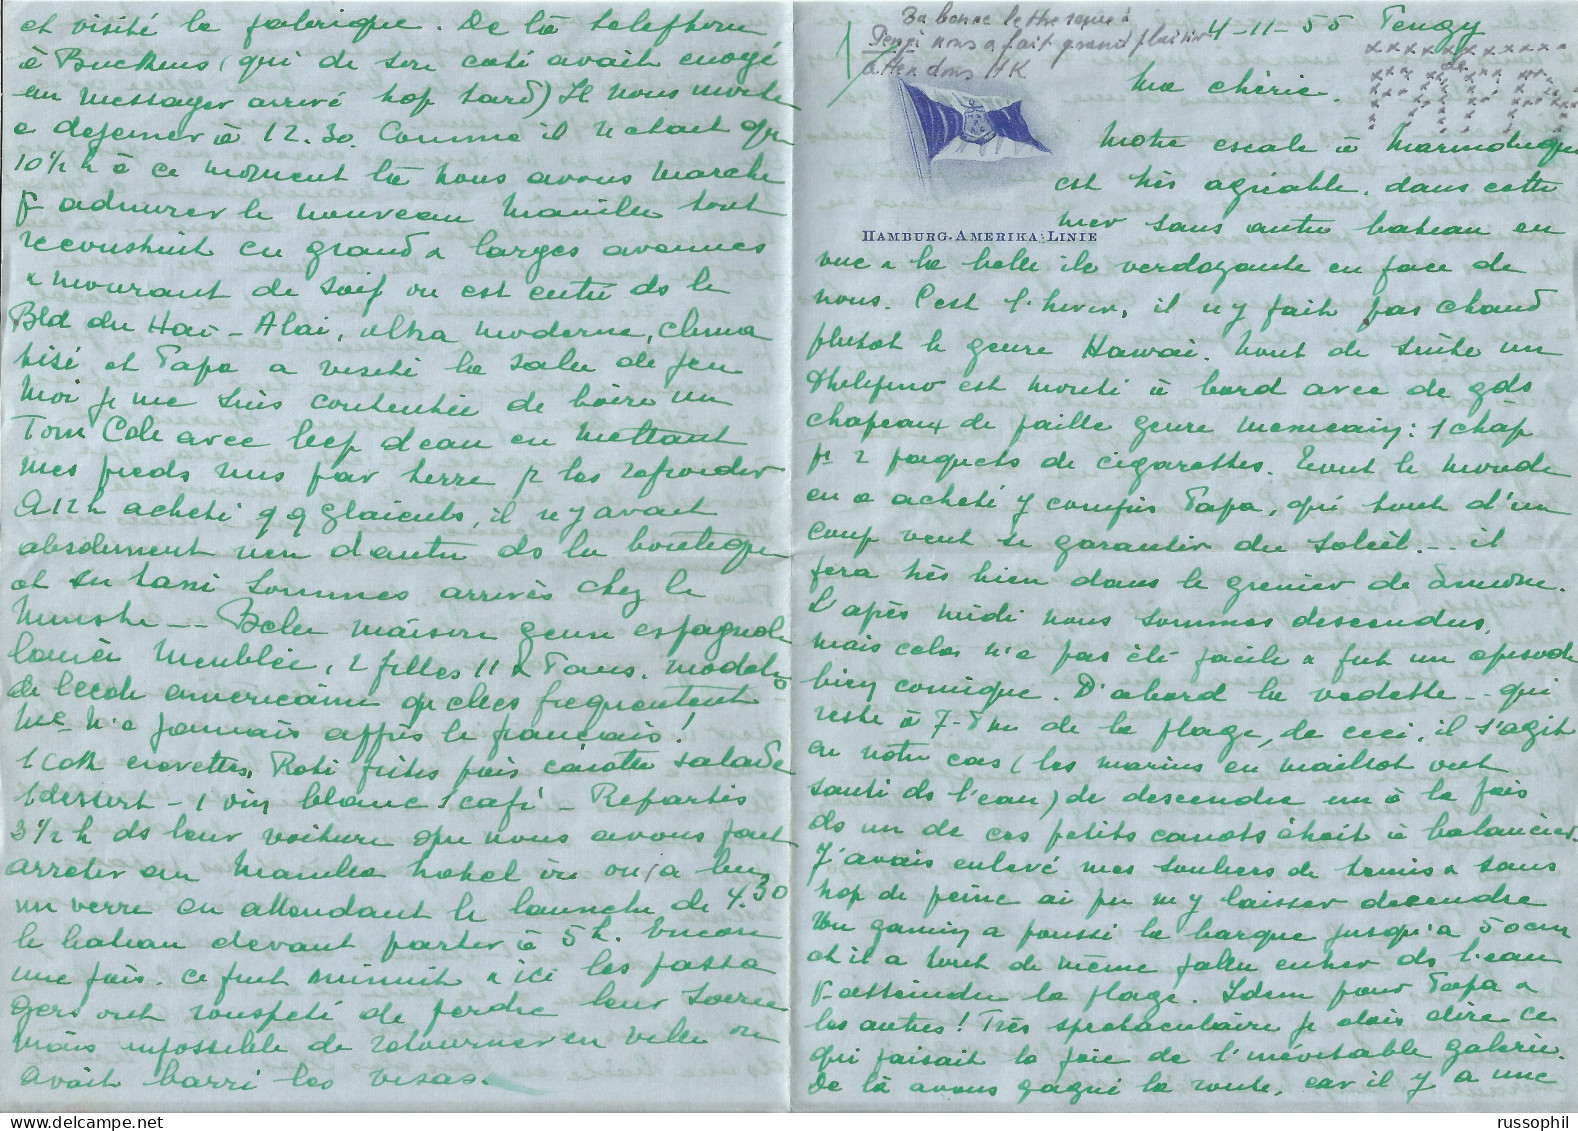 Ta bonne lettre reçue à
Pengi nous a fait grand plaisir
attendons HK
4-11-55 Pengy
Ma chérie.
Notre escale à Marinduque
est très agréable. dans cette
mer sans autre bateau en
HAMBURG-AMERIKA-LINIE
vue & la belle île verdoyante en face de
nous. C'est l'hiver, il n'y fait pas chaud
plutot le genre Hawai. Tout de suite un
Philipino est monté à bord avec de gds
chapeaux de paille genre mexicain: 1 chap
pr 2 paquets de cigarettes. Tout le monde
en a acheté y compris Papa, qui tout d'un
coup veut se garantir du soleil... il
fera très bien dans le grenier de
L'après midi nous sommes descendus,
mais cela n'a pas été facile & fut un episode
bien comique. D'abord la vedette -- qui
reste à 7-8 m de la plage, de ceci, il s'agit
en notre cas (les marins en maillot ont
sauté ds l'eau) de descendre un à la fois
ds un de ces petits canots étroit à balancier.
J'avais enlevé mes souliers de tennis & sans
trop de peine ai pu m'y laisser descendre
Un gamin a poussé la barque jusqu'à 50cm
et il a tout de même fallu entrer ds l'eau
pr atteindre la plage. Idem pour Papa &
les autres! Très spectaculaire je dois dire ce
qui faisait la joie de l'inévitable galerie.
De là avons gagné la route, car il y a une
et visité la fabrique. De là telephone
à Buckens (qui de son coté avait envoyé
un messager arrivé trop tard) Il nous invite
a dejeuner à 12.30. Comme il n'etait que
10½ h à ce moment là nous avons marché
pr admirer le nouveau Manilla tout
reconstruit en grand & larges avenues
& mourant de soif on est entré ds le
Bld du Hai-Alai, ultra moderne, clima
tisé et Papa a visité la salle de jeu
Moi je me suis contentée de boire un
Tom Cole avec bcp d'eau en mettant
mes pieds nus par terre pr les refroidir
A 12h acheté qq glaieuls, il n'y avait
absolument rien d'autre ds la boutique
et en taxi sommes arrivés chez le
Ministre -- Belle maison genre espagnole
louée meublée, 2 filles 11 & 7 ans. modèles
de l'école américaine qu'elles frequentent
Me n'a jamais appris le français!
1 Cokt crevettes, Roti frites pois carottes salade
1 dessert - 1 vin blanc 1 café - Repartis
3½ h ds leur voiture que nous avons fait
arreter au Manilla hotel où on a bu
un verre en attendant le launche de 4.30
le bateau devant partir à 5h. Encore
une fois. ce fut minuit & ici les passa
gers ont rouspété de perdre leur soirée
Mais impossible de retourner en ville on
avait barré les visas.